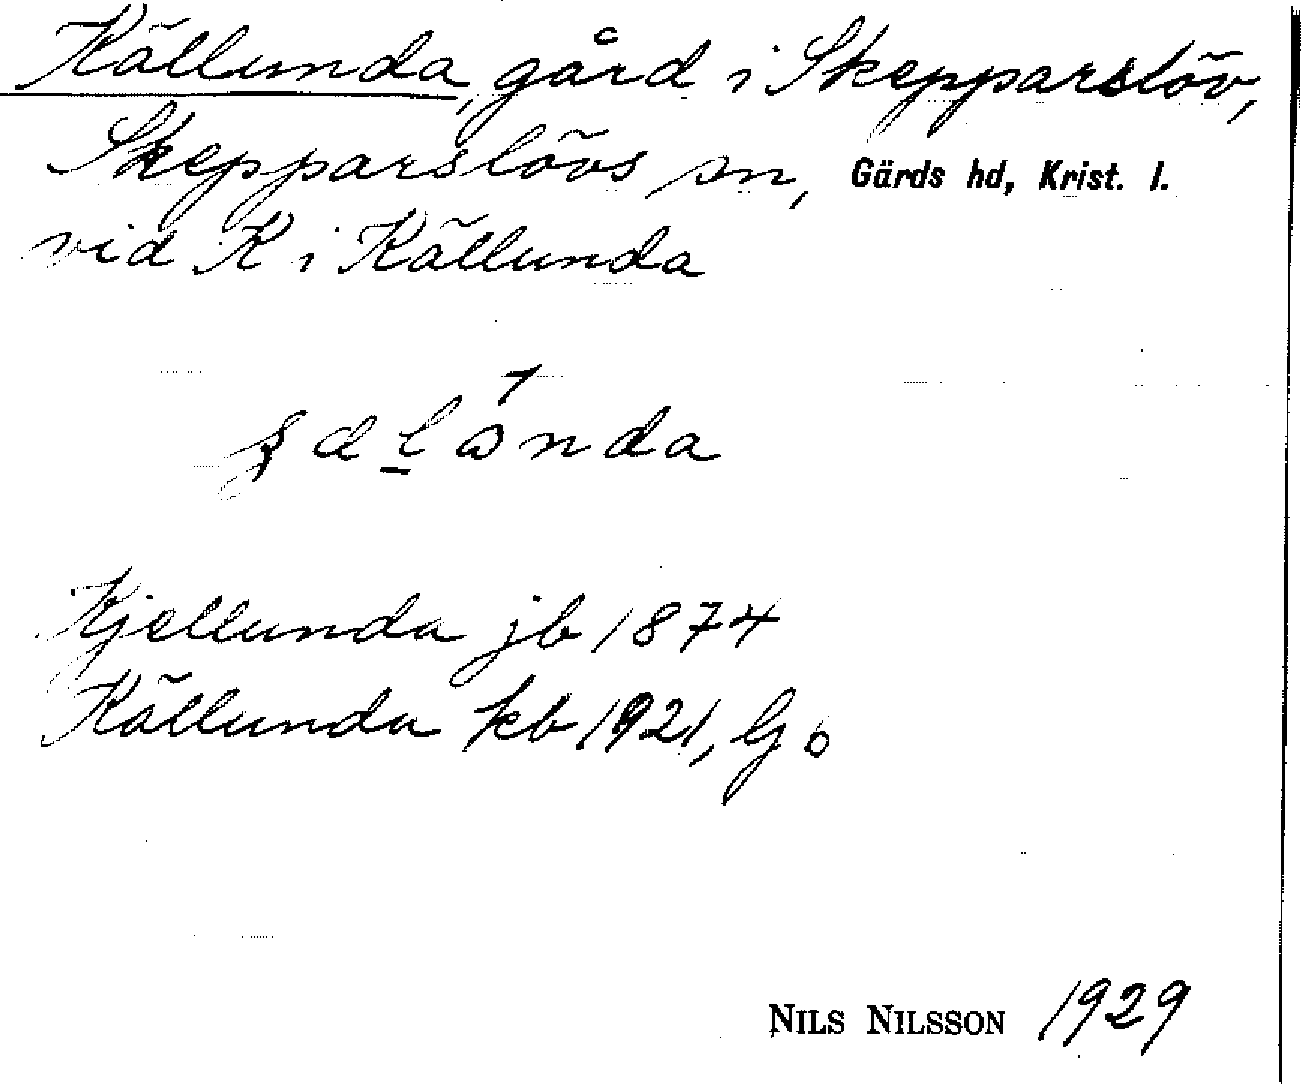 Källunda, gård i Skepparslöv,
Skepparslövs sn, Gärds hd, Krist. l.
vid K i Källunda
Kjellunda jb 1874
Källunda kb 1921, Gb
NILS NILSSON 1929